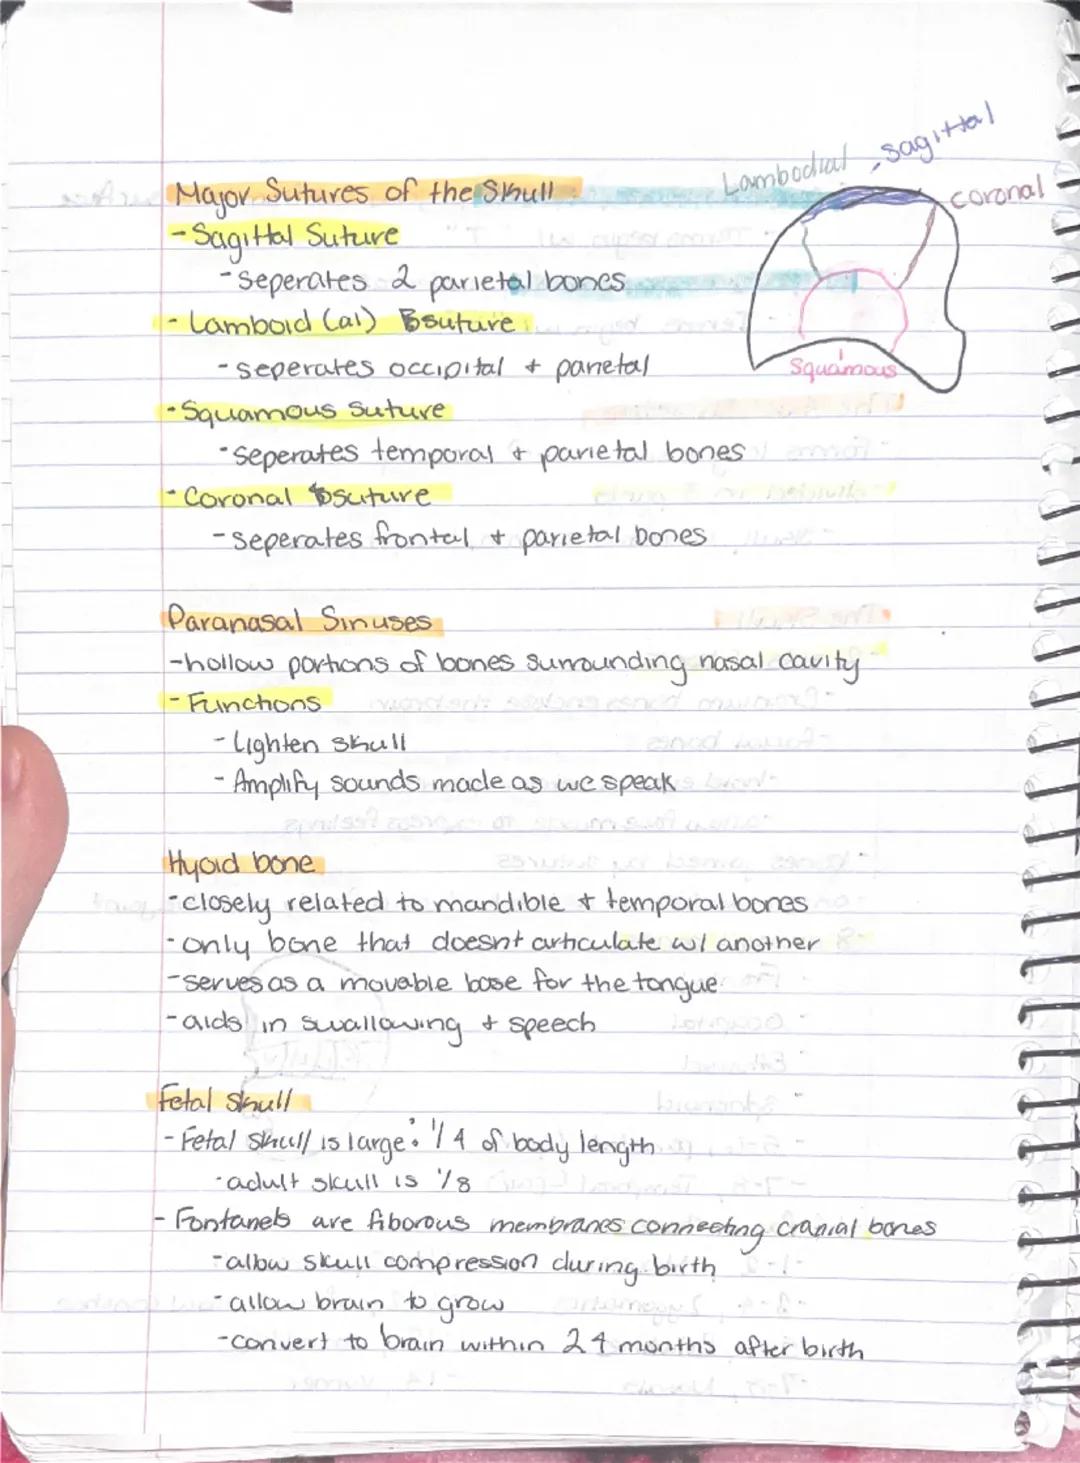 Lambodial
sagittal
coronal
Squamous
Major Sutures of the Skull
- Sagittal Suture
- seperates 2 parietal bones
- Lamboid (al) suture
- seperates occipital + parietal
- Squamous suture
- seperates temporal + parietal bones
- Coronal suture
- seperates frontal + parietal bones
Paranasal Sinuses
- hollow portions of bones surrounding nasal cavity
- Functions
- Lighten skull
- Amplify sounds made as we speak
Hyoid bone
- closely related to mandible + temporal bones
- only bone that doesnt articulate w/ another
- serves as a movable base for the tongue
- aids in swallowing + speech
Fetal skull
- Fetal skull is large: 1/4 of body length
- adult skull is 1/8
- Fontanels are fiborous membranes connecting cranial bones
- allow skull compression during birth
- allow brain to grow
- convert to brain within 24 months after birth